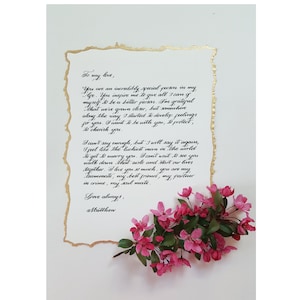 To my love,
You are an incredibly special person in my
life. You inspire me to give all I can of
myself to be a better person. I'm grateful
that we've grown close, but somewhere
along the way, I started to develop feelings
for you. I want to be with you, to protect,
to cherish you.
I can't say enough, but I will say it again,
I feel like the luckiest man in the world
to get to marry you. I can't wait to see you
walk down that aisle and start our lives
together. I love you so much, you are my
teammate, my best friend, my partner
in crime, my soul mate.
Love always,
Matthew